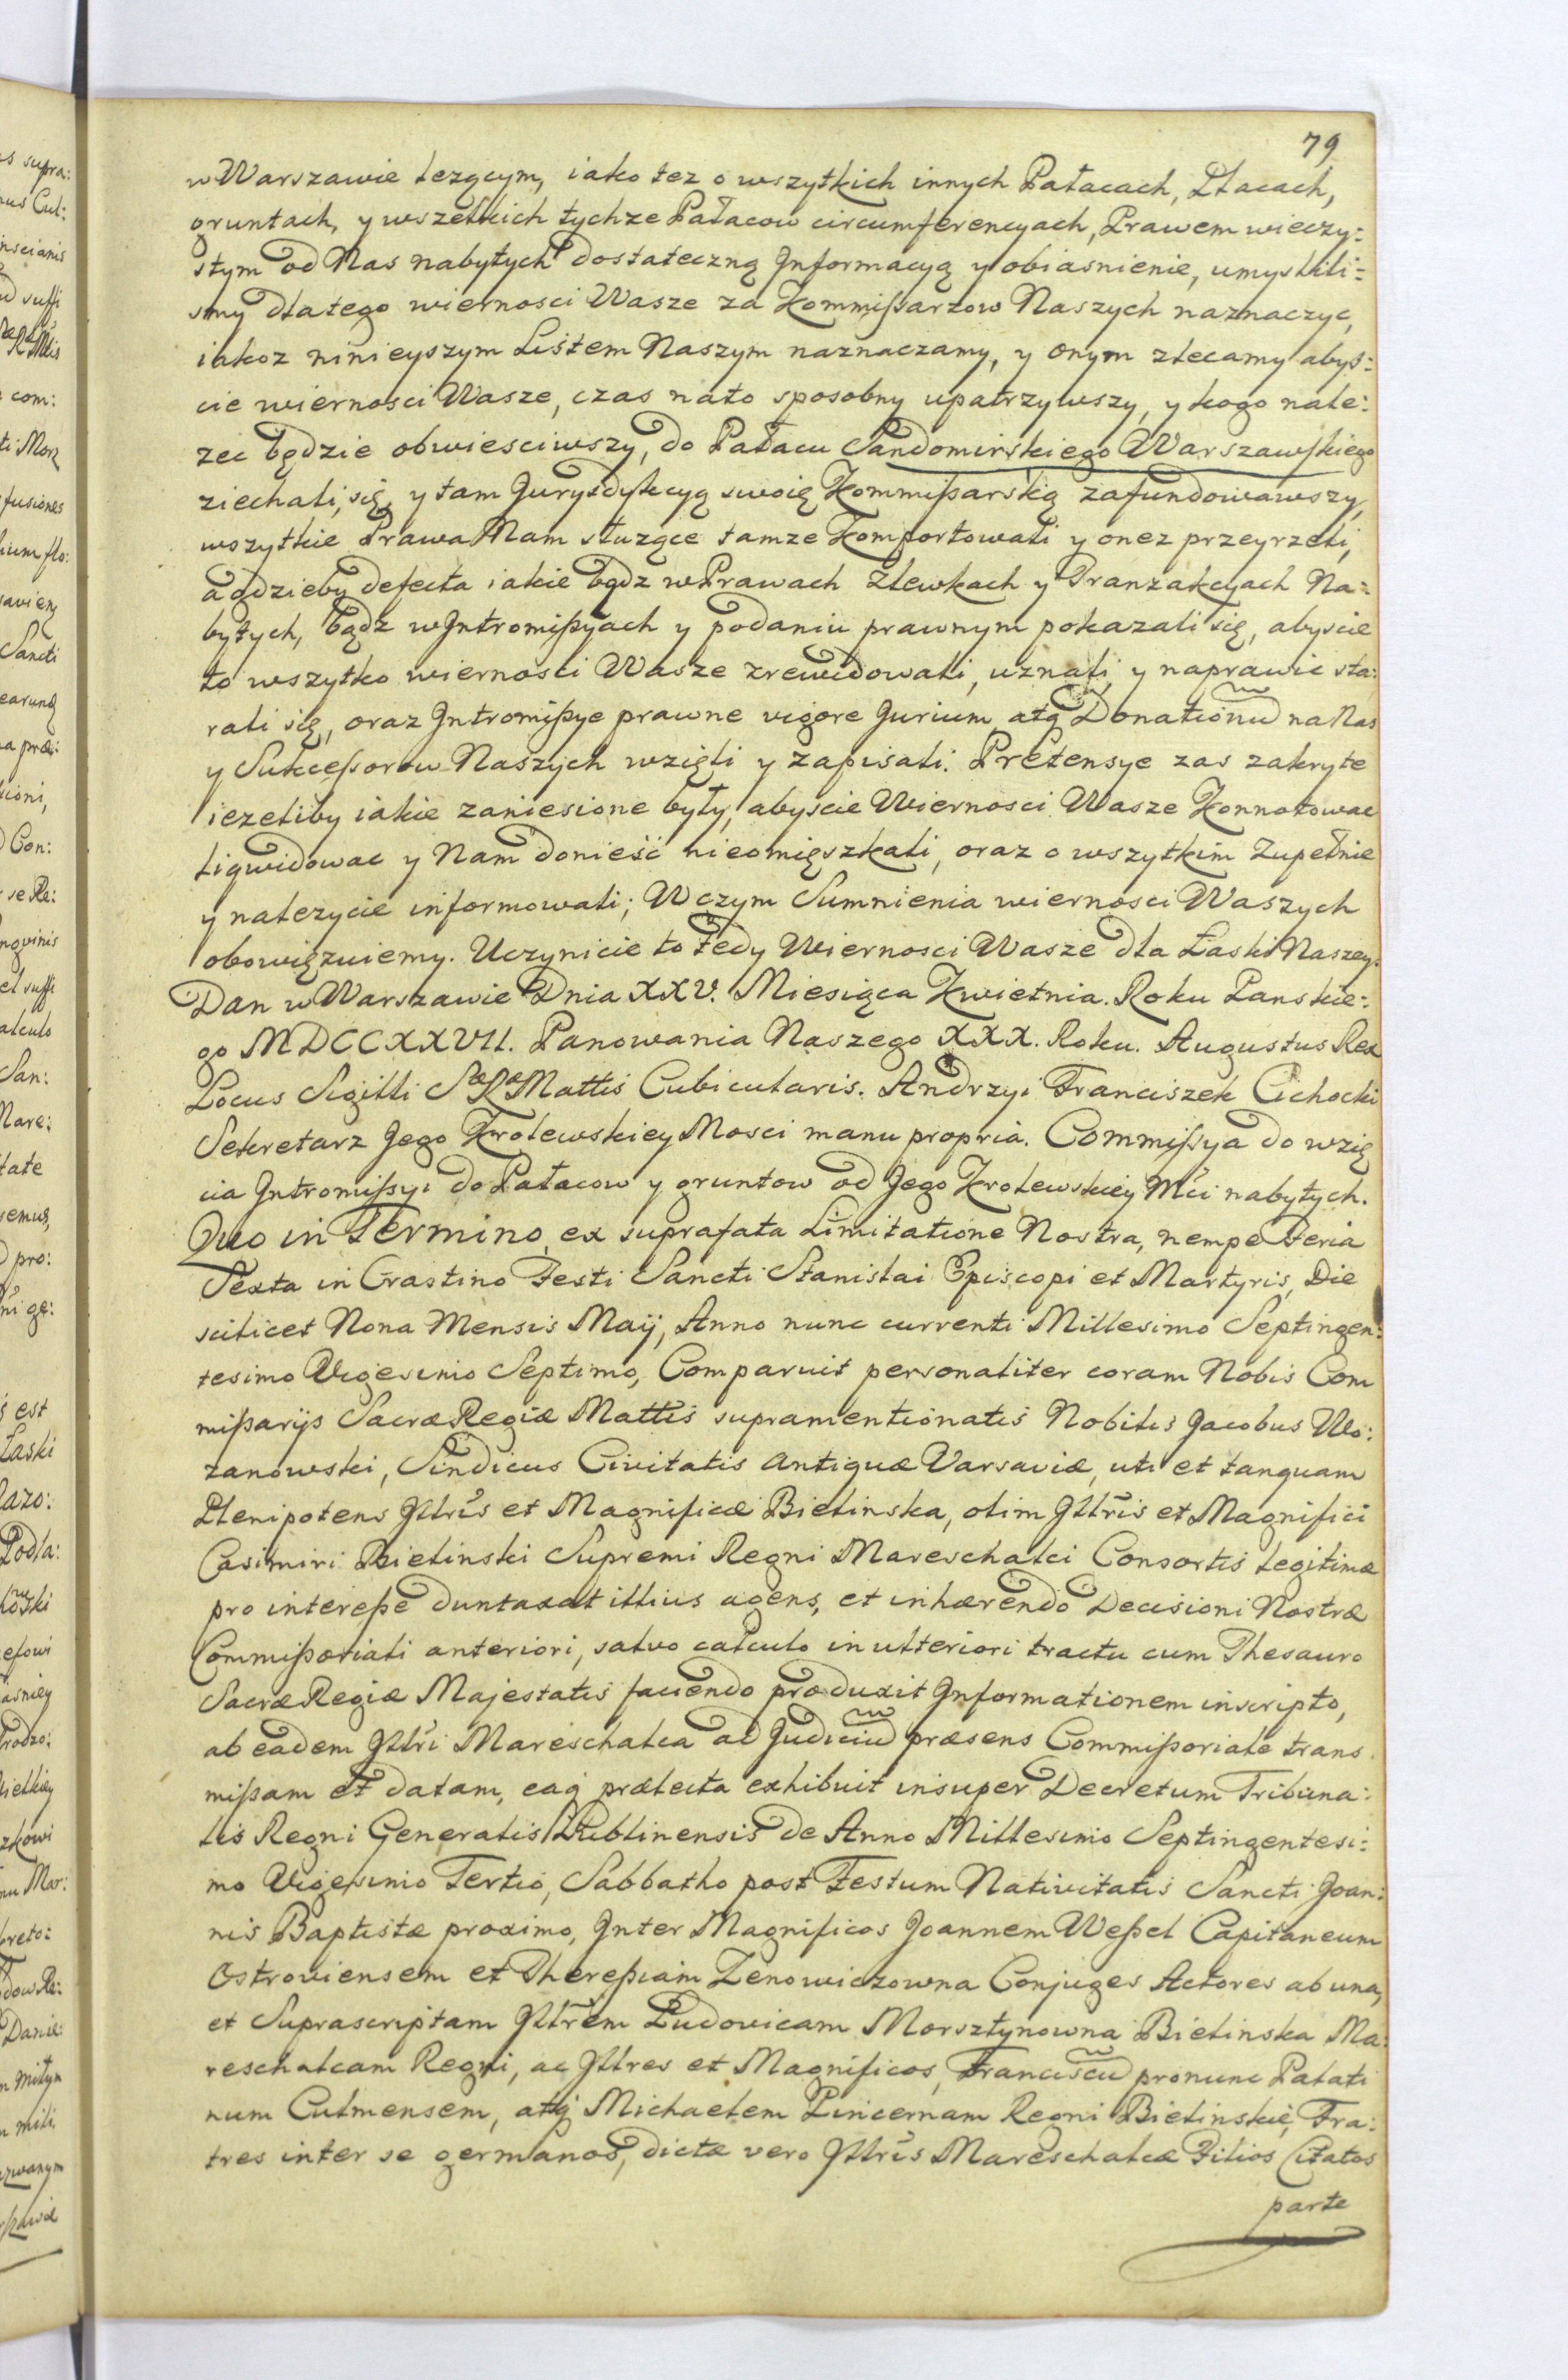 79
w Warszawie lezącym, iako tez o wszytkich innych Pałacach, Placach,
gruntach, y wszelkich tychze Pałacow circumferencyach, Prawem wieczy:
stym od Nas nabytych dostateczną Informacyą y obiasnienie, umyslili:
smy dlatego wiernosci Wasze za Kommißarzow Naszych naznaczyc,
iakoz ninieyszym Listem Naszym naznaczamy, y onym zlecamy abys:
cie wiernosci Wasze, czas nato sposobny upatrzywszy, y kogo nale:
zec będzie obwiesciwszy, do Pałacu Sandomirskiego Warszawskiego
ziechali, się, y tam Jurysdykcyą swoię Kommißarską zafundowawszy,
wszytkie Prawa Nam słuzące tamze Komportowali y onez przeyrzeli,
a gdzieby defecta iakie bądz w Prawach Zlewkach y Tranzakcyach Na:
bytych, bądz w Intromißyach y podaniu prawnym pokazali się, abyscie
to wszytko wiernosci Wasze zrewidowali, uznali, y naprawic sta:
rali się, oraz Intromißye prawne vigore Jurium atq Donationū na Nas
y Sukceßorow Naszych wzięli y zapisali. Pretensye zas zakryte
iezeliby iakie zaniesione były, abyscie Wiernosci Wasze Konnotowac
liqwidowac y Nam donieść nieomięszkali, oraz o wszytkim Zupełnie
y nalezycie informowali; W czym Sumnienia wiernosci Waszych
obowięzuiemy. Uczynicie to tedy Wiernosci Wasze dla Łaski Naszey.
Dan w Warszawie Dnia XXV. Miesiąca Kwietnia. Roku Panskie:
go MDCCXXVII. Panowania Naszego XXX. Roku. Augustus Rex
Locus Sigilli Sæ Ræ Mattis Cubicularis. Andrzyi Franciszek Cichocki
Sekretarz Jego Krolewskiey Mosci manu propria. Commißya do wzię
cia Intromißyi do Pałacow y gruntow od Jego Krolewskiey Mci nabytych.
Quo in Termino, ex suprafata Limitatione Nostra, nempe Feria
Sexta in Crastino Festi Sancti Stanislai Episcopi et Martyris, Die
scilicet Nona Mensis Maij, Anno nunc currenti Millesimo Septingen:
tesimo Vigesimo Septimo, Comparuit personaliter coram Nobis Com
mißarijs Sacræ Regiæ Mattis supramentionatis Nobilis Jacobus Wo:
zanowski, Sindicus Civitatis Antiquæ Varsaviæ, uti et tanquam
Plenipotens Jllris et Magnificæ Bielinska, olim Jllris et Magnifici
Casimiri Bielinski Supremi Regni Mareschalci Consortis legitimæ
pro intereße duntaxat illius agens, et inhærendo Decisioni Nostræ
Commißoriali anteriori, salvo calculo in ulteriori tractu cum Thesauro
Sacræ Regiæ Majestatis faciendo produxit Informationem inscripto,
ab eadem Jllri Mareschalca ad Judiciū præsens Commißoriale trans
mißam et datam, eaq prælecta exhibuit insuper Decretum Tribuna:
lis Regni Generalis Lublinensis de Anno Millesimo Septingentesi:
mo Vigesimo Tertio, Sabbatho post Festum Nativitatis Sancti Joan:
nis Baptistæ proximo, Inter Magnificos Joannem Weßel Capitaneum
Ostroviensem et Thereßiam Zenowiczowna Conjuges Actores ab una,
et Suprascriptam Jllrem Ludovicam Morsztynowna Bielinska Ma:
reschalcam Regni, ac Jllres et Magnificos, Franciscū pronunc Palati
num Culmensem, atq Michaelem Pincernam Regni Bielinskie, Fra:
tres inter se germanos, dictæ vero Jllris Mareschalcæ Filios Citatos
parte